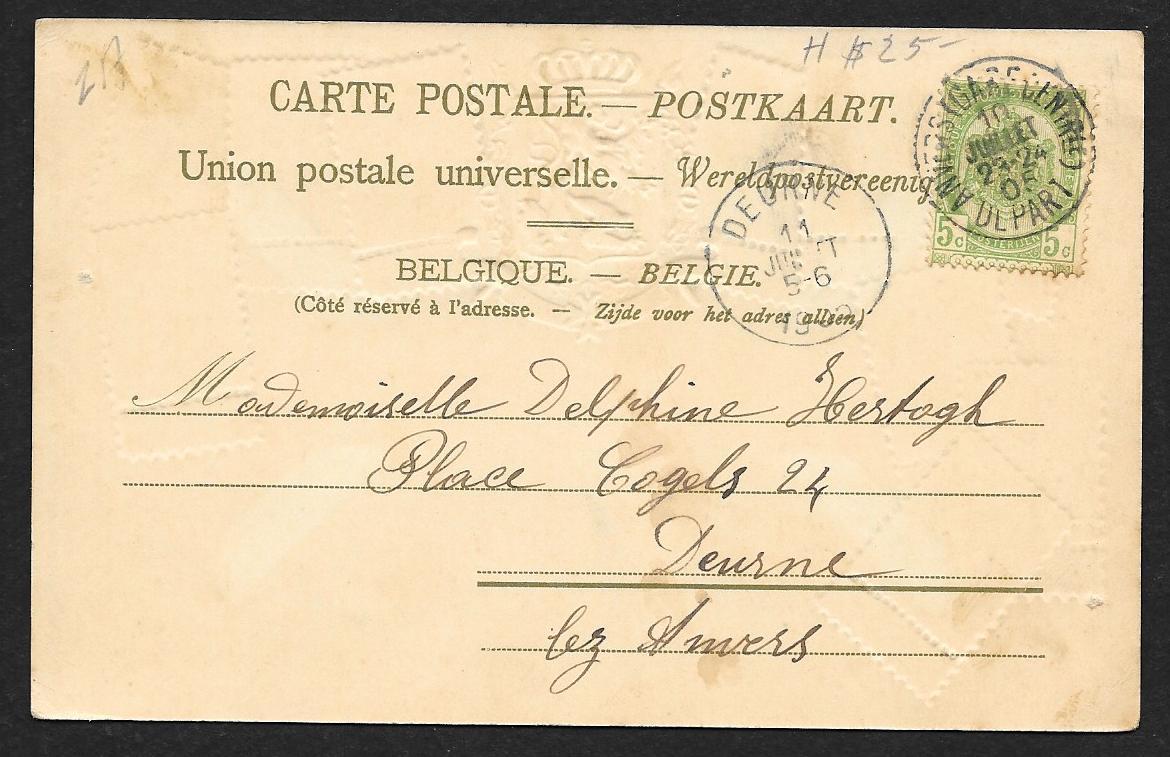 H $25-
CARTE POSTALE. — POSTKAART.
Union postale universelle. — Wereldpostvereenig
BELGIQUE. — BELGIE.
(Côté réservé à l'adresse. — Zijde voor het adres alleen)
ANVERS (GARE CENTRALE)
10
JUILLET
23-24
05
DEPART
5c 5c
DEURNE
11
JUILT
5-6
19
Mademoiselle Delphine Hertogh
Place Cogels 24
Deurne
lez Anvers